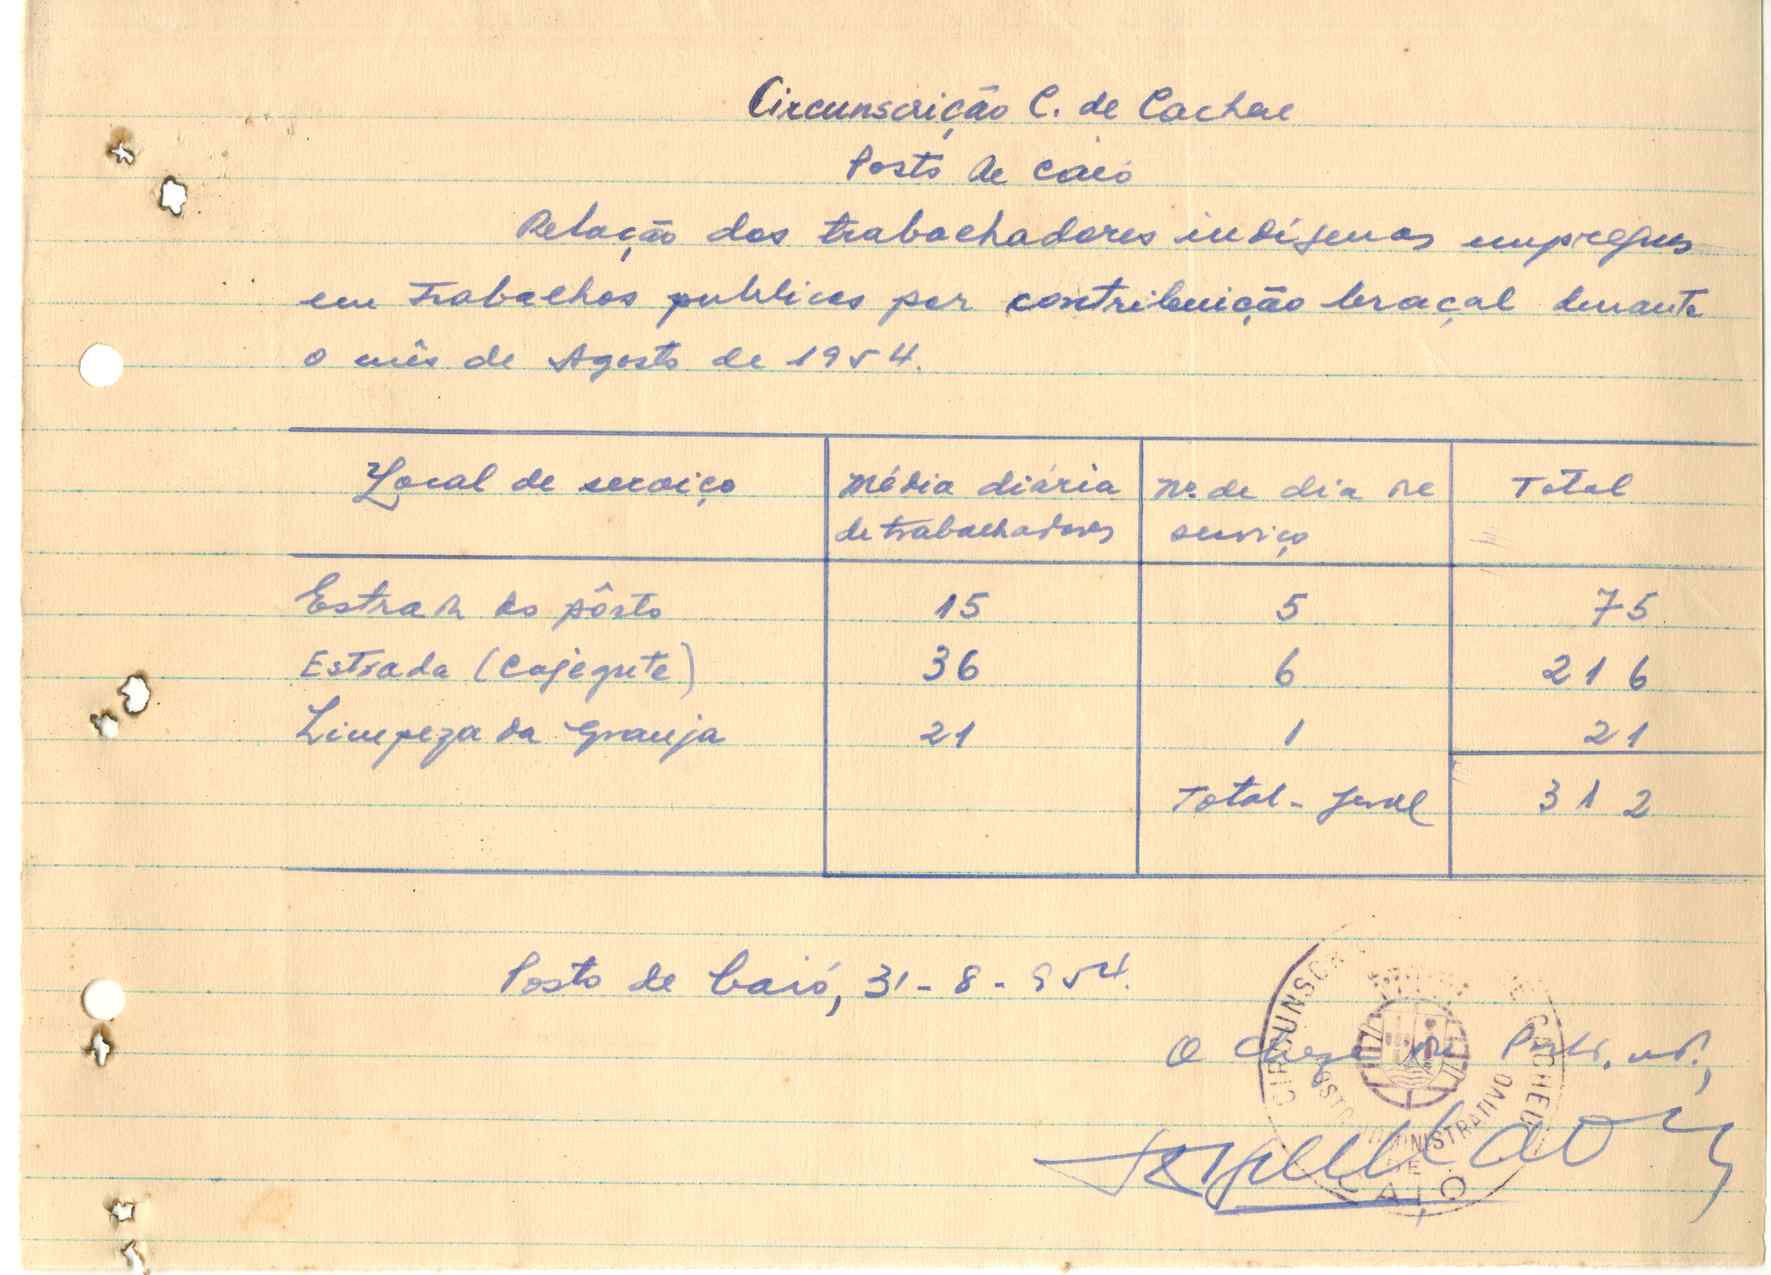 Circunscrição C. de Cacheu
Posto de Caió
Relação dos trabalhadores indígenas empregues
em Trabalhos publicos por contribuição braçal durante
o mês de Agosto de 1954.
Local de serviço Média diária de trabalhadores Nº. de dia de serviço Total
Estrada do pôrto 15 5 75
Estrada (Cajegute) 36 6 216
Limpeza da Granja 21 1 21
Total-geral 312
Posto de Caió, 31-8-954.
O Chefe de Posto,
CIRCUNSCR DE CACHEU
POSTO ADMINISTRATIVO
DE
CAIÓ